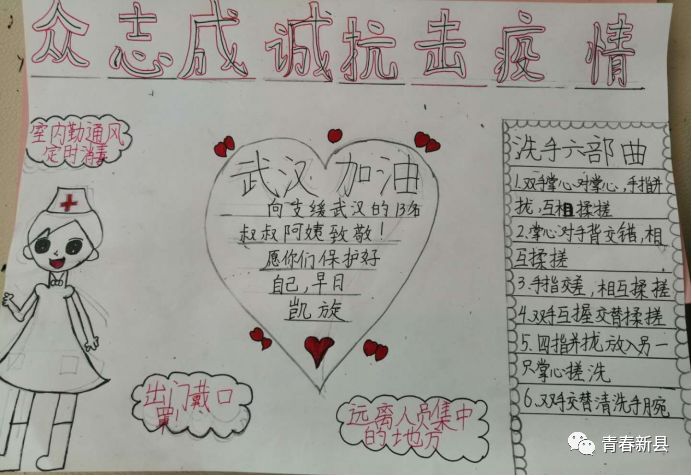 众志成诚抗击疫情
室内勤通风
定时消毒
武汉 加油
向支缓武汉的13名
叔叔阿姨致敬！
愿你们保护好
自己,早日
凯旋
洗手六部曲
1.双手掌心对掌心,手指并
拢,互相揉搓
2.掌心对手背交错,相
互揉搓
3.手指交差,相互揉搓
4.双手互握交替揉搓
5.四指并拢放入另一
只掌心搓洗
6.双手交替清洗手腕
出门戴口
罩
远离人员集中
的地方
青春新县